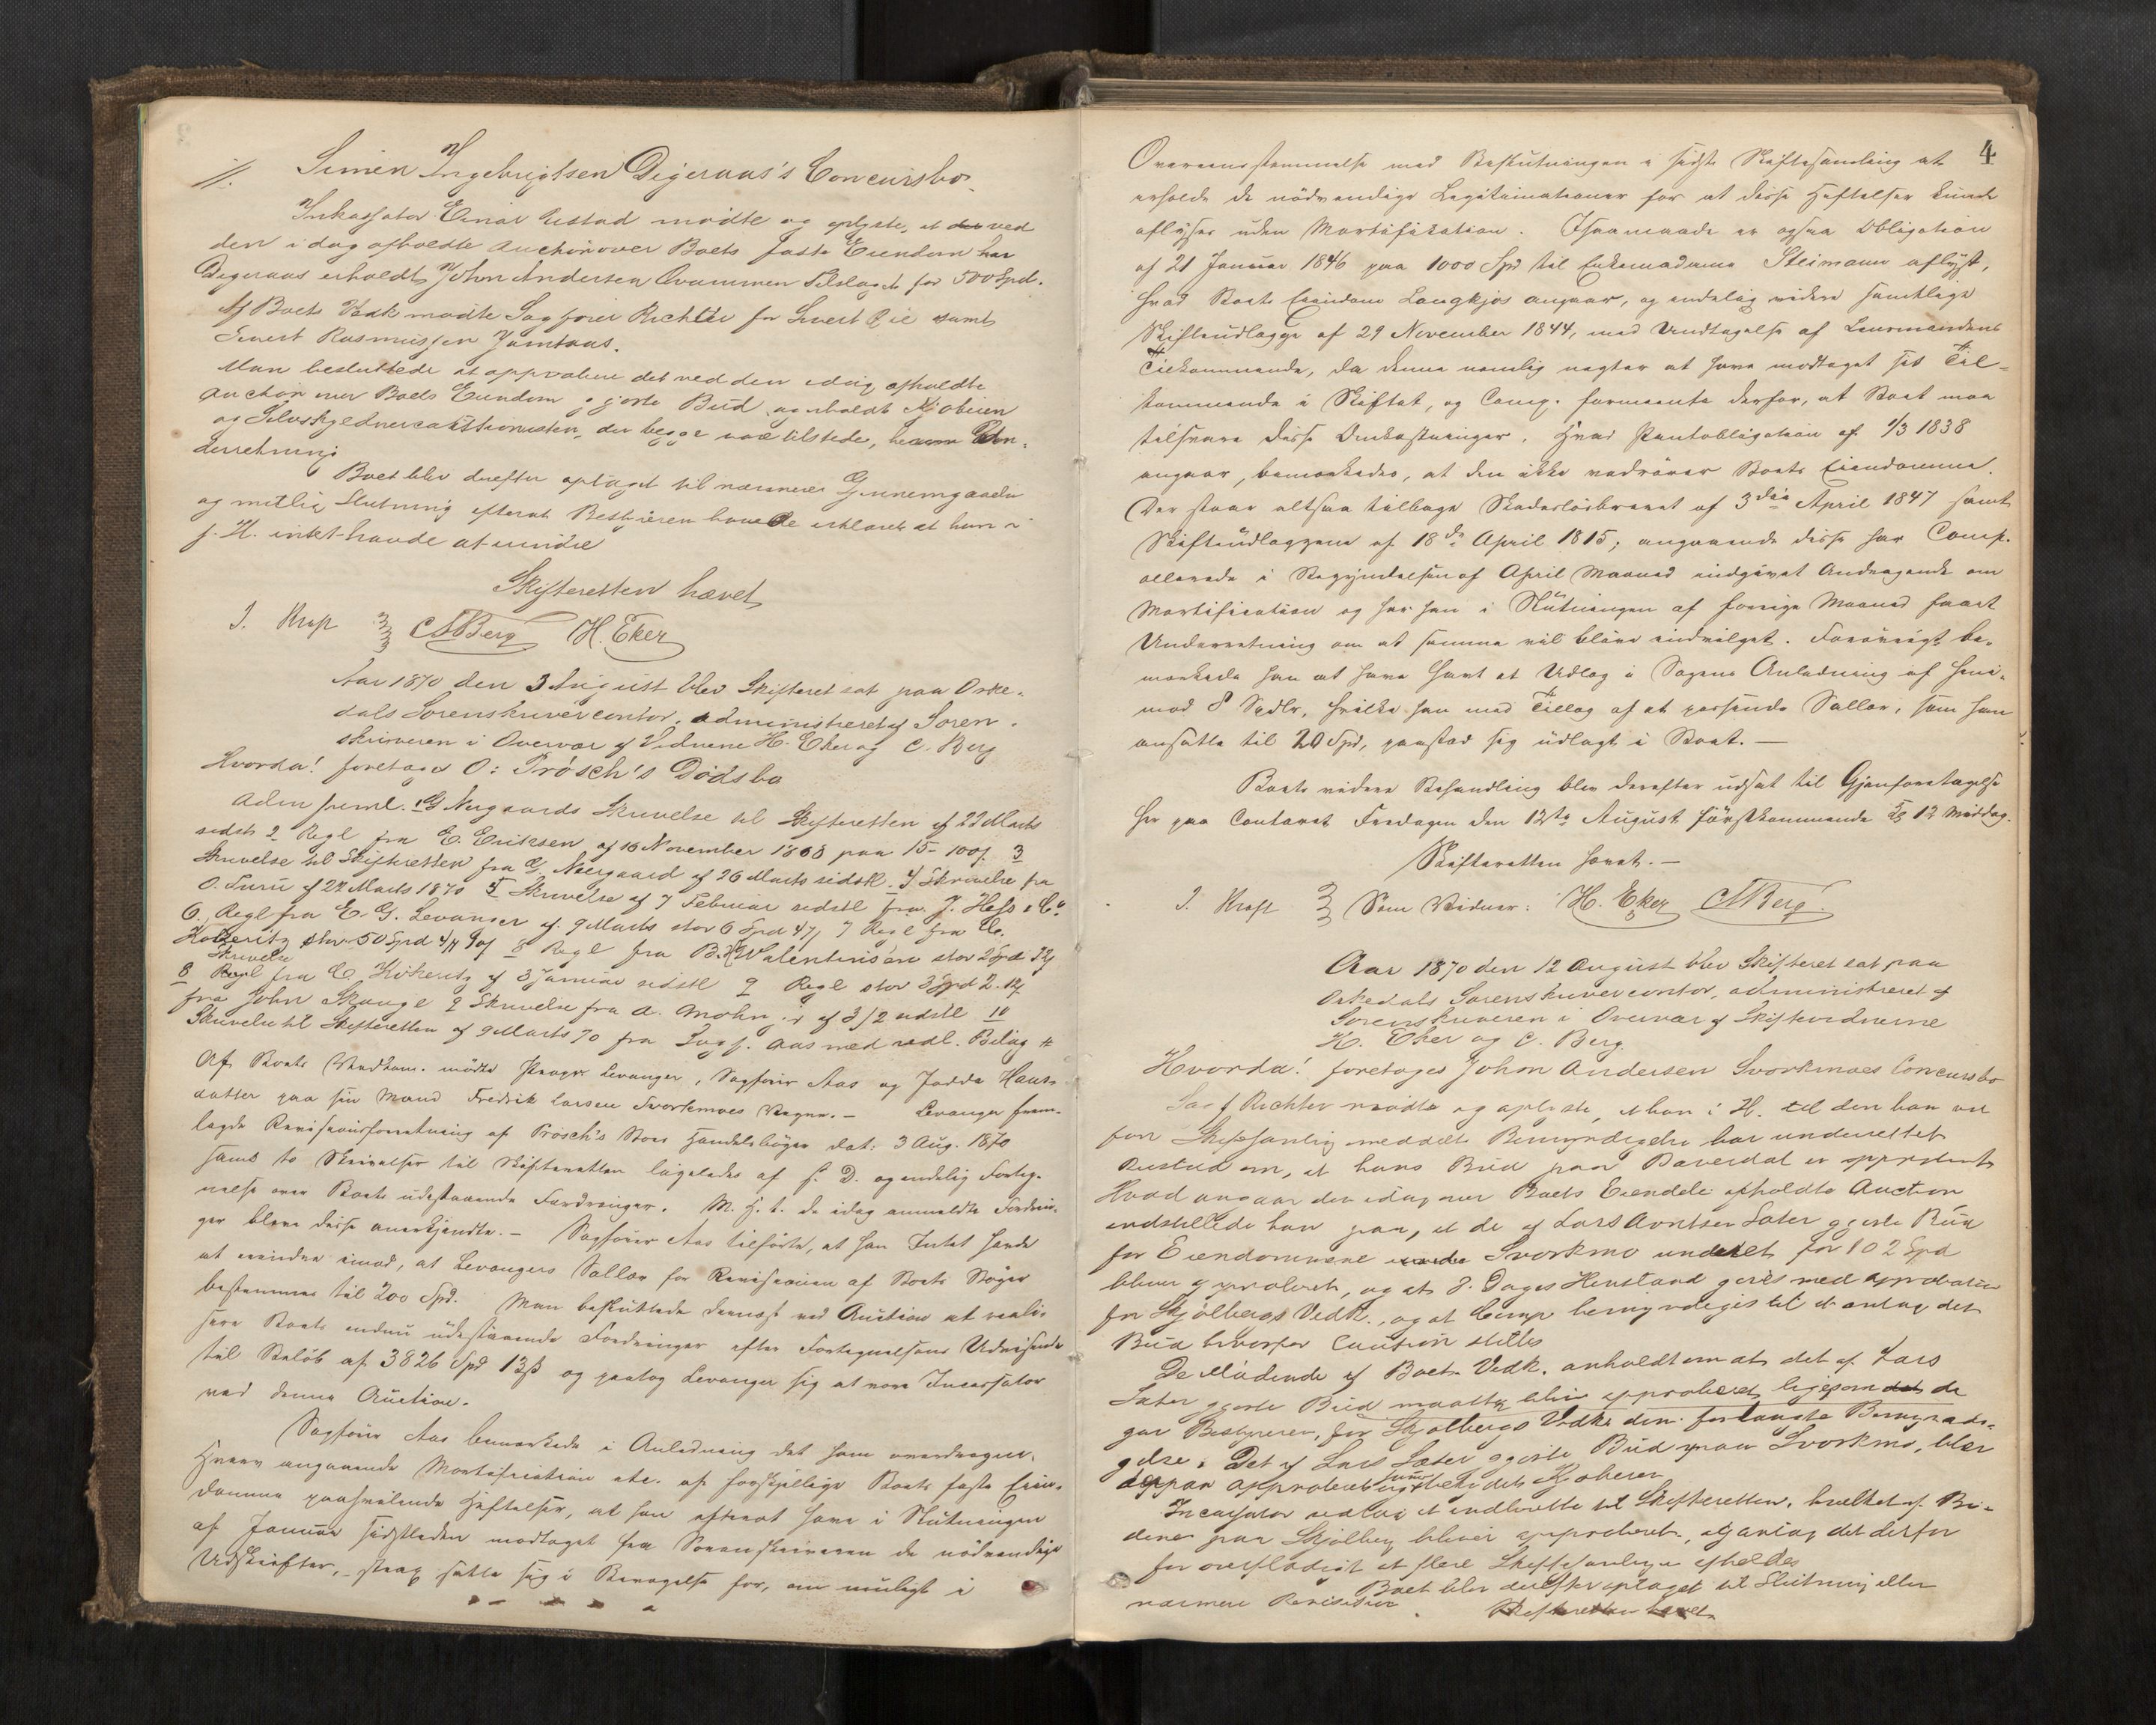 11. Simen Ingebrigtsen Digeraas's Concursbo.
Inkassator Einar Ustad mödte og oplyste, at der ved
den i dag afholdte Auction over Boets faste Eiendom har
Digeraas erholdt John Andersen Qvammen Tilslaget for 500 Spd.
Af Boets Vedk mödte Sagförer Richter for Sivert samt
Sivert Rasmussen Jamtaas.
Man besluttede at approbere det ved den idag afholdte
Auction over Boets Eiendom gjorte Bud og erholdt Kjöberen
og Selvskyldnercautionisten, der begge var tilstede, herom Un-
derretning
Boet blev derefter optaget til nærmere Gjennemgaaelse
og mulig Slutning efterat Bestyreren havde erklæret at han i
s. H. intet havde at erindre
Skifteretten hævet
J. Kraft CNBerg H. Eker
Aar 1870 den 3 August blev Skifteret sat paa Orke-
dals Sorenskrivercontor, administreret af Soren-
skriveren i Overvær af Vidnerne H. Eker og C. Berg
Hvorda! foretoges O: Prösch's Dödsbo
Aden freml. 1 G Nergaards Skrivelse til Skifteretten af 22 Marts
sidstl. 2 Regl fra E. Eriksen af 16 November 1868 paa 15- 100 s. 3
Skrivelse til Skifteretten fra G. Neergaard af 26 Marts sidstl. 4 Skrivelse fra
O. af 22 Marts 1870 5 Skrivelse af 7 Februar sidstl fra J. Hess & Co
6. Regl fra E. G. Levanger af 9 Marts stor 6 Spd 47 s 7 Regl fra C.
Hokeritz stor 50 Spd 4 90 s 8 Regl fra B. Valentinsen stor 2 Spd 32 s
8 Skrivelse fra C. Hökeritz af 3 Januar sidstl 9 Regl stor 3 Spd 2. 12 s
fra John Skauge 9 Skrivelse fra A. Mohn jr af 3/2 sidstl 10
Skrivelse til Skifteretten af 9 Marts 70 fra Sagf. Aas med vedl. Bilag
Af Boets Vedkom. mödte Levanger, Sagförer Aas og Hans-
datter paa sin Mand Fredrik Larsen Svorkmoes Vegne. — Levanger frem-
lagde Revisionsforretning af Prösch's Boes Handelsböger dat: 3 Aug. 1870
samt to Skrivelser til Skifteretten ligeledes af s. D. og endelig Forteg-
nelse over Boets udestaaende Fordringer. M. H. t. de idag anmeldte Fordrin-
ger bleve disse anerkjendte. — Sagförer Aas tilförte, at han Intet havde
at erindre imod, at Levangers Sallær for Revisionen af Boets Böger
bestemmes til 200 Spd. Man besluttede dernæst ved Auction at reali-
sere Boets endnu udestaaende Fordringer efter Fortegnelsens Udvisende
til Belöb af 3826 Spd 13 ß og paatog Levanger sig at være Incassator
ved denne Auction.
Sagförer Aas bemærkede i Anledning det ham overdragne
Hverv angaaende Mortification etc. af forskjellige Boets faste Eien-
domme paahvilende Heftelser, at han efterat have i Slutningen
af Januar sidstleden modtaget fra Sorenskriveren de nödvendige
Udskrifter, strax satte sig i Bevægelse for, om muligt i
4
Overensstemmelse med Beslutningen i sidste Skiftesamling at
erholde de nödvendige Legitimationer for at disse Heftelser kunde
aflyses uden Mortifikation. Ihvormeget er ogsaa Obligation
af 21 Januar 1846 paa 1000 Spd til Enkemadame Steimann aflyst,
hvad Boets Eiendom Langkjos angaar, og endelig videre samtlige
Skifteudlæg af 29 November 1844, med Undtagelse af Lensmandens
Tilkommende, da denne nemlig negter at have modtaget sit Til-
kommende i Skiftet, og Comp. formente derfor, at Boet maa
tilsvare disse Omkostninger. Hvad Pantobligation af 1/3 1838
angaar, bemærkedes, at den ikke vedrörer Boets Eiendomme.
Der staar altsaa tilbage Skadeslösbrevet af 3die April 1847 samt
Skifteudlæggene af 18de April 1815; angaaende disse har Comp.
allerede i Begyndelsen af April Maaned indgivet Andragende om
Mortification og har han i Slutningen af forrige Maaned faaet
Underretning om at samme vil blive indvilget. Forövrigt be-
mærkede han at have havt et Udlæg i Sagens Anledning af heni-
mod 8 Spdlr, hvilke han med Tillæg af et passende Sallær, som han
ansatte til 20 Spd, paastod sig udlagt i Boet. —
Boets videre Behandling blev derefter udsat til Gjenforetagelse
her paa Contoret Fredagen den 12te August förstkommende Kl 12 Middag.
Skifteretten hævet. —
J. Kraft Som Vidner: H. Eker CNBerg.
Aar 1870 den 12 August blev Skifteret sat paa
Orkedals Sorenskrivercontor, administreret af
Sorenskriveren i Overvær af Skiftevidnerne
H. Eker og C. Berg.
Hvorda! foretoges John Andersen Svorkmoes Concursbo
Sagf Richter mödte og oplyste, at han i H. til den ham ved
forr Skiftesamling meddelte Bemyndigelse har underrettet
Rustad om, at hans Bud paa Baverdal er approberet
Hvad angaar den idag over Boets Eiendele afholdte Auction
indstillede han paa, at de af Lars Arntsen Sæter gjorte Bud
for Eiendommene Svorkmo underlet for 102 Spd
bliver approberet, og at 8. Dages Henstand gives med Approbation
for Skjölbergs Vedk., og at Comp bemyndiges til at antage det
Bud hvorfor Caution stilles
De Mödende af Boets Vedk. anholdt om at det af Lars
Sæter gjorte Bud maatte blive approberet, ligesom de
gav Bestyreren, for Skjölbergs Vedk. den forlangte Bemyndi-
gelse. Det af Lars Sæter gjorte Bud paa Svorkmo, blev
derpaa approberet Kjöberen
Incassator vedtog at indberette til Skifteretten, hvilket af Bu-
dene paa Skjölberg bliver approberet, og antog det derfor
for overflödigt at flere Skiftesamlinger afholdes
Boet blev derefter optaget til Slutning eller
nærmere Revision. Skifteretten hævet.